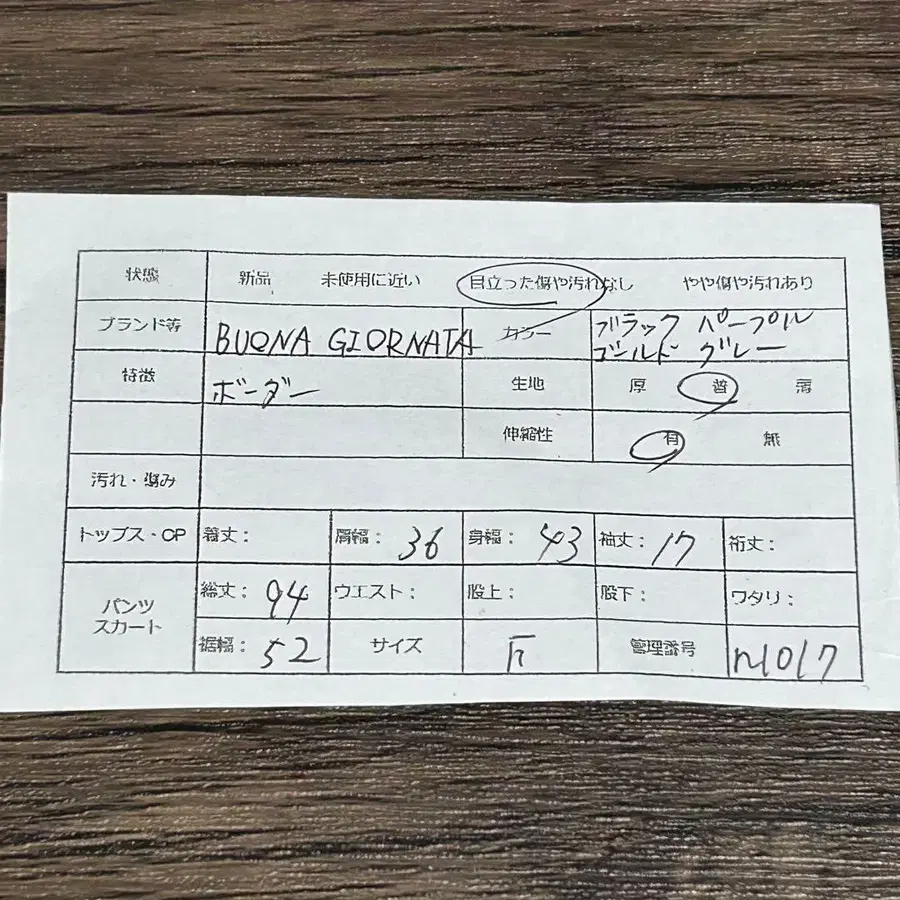 状態 新品 未使用に近い 目立った傷や汚れなし やや傷や汚れあり
ブランド等 BUONA GIORNATA カラー ブラック パープル
ゴールド グレー
特徴 ボーダー 生地 厚 普 薄
伸縮性 有 無
汚れ・傷み
トップス・OP 着丈: 肩幅: 36 身幅: 43 袖丈: 17 裄丈:
パンツ
スカート
総丈: 94 ウエスト: 股上: 股下: ワタリ:
裾幅: 52 サイズ 管理番号 n1017